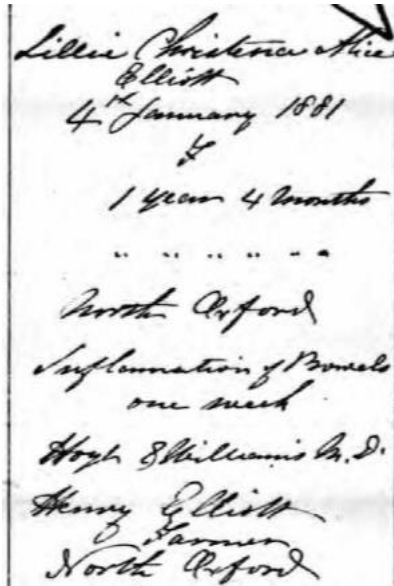 Lillie Christena Alice
Elliott
4th January 1881
F
1 year 4 months
" " " " " "
North Oxford
Inflammation of Bowels
one week
Williams M.D.
Henry Elliott
Farmer
North Oxford